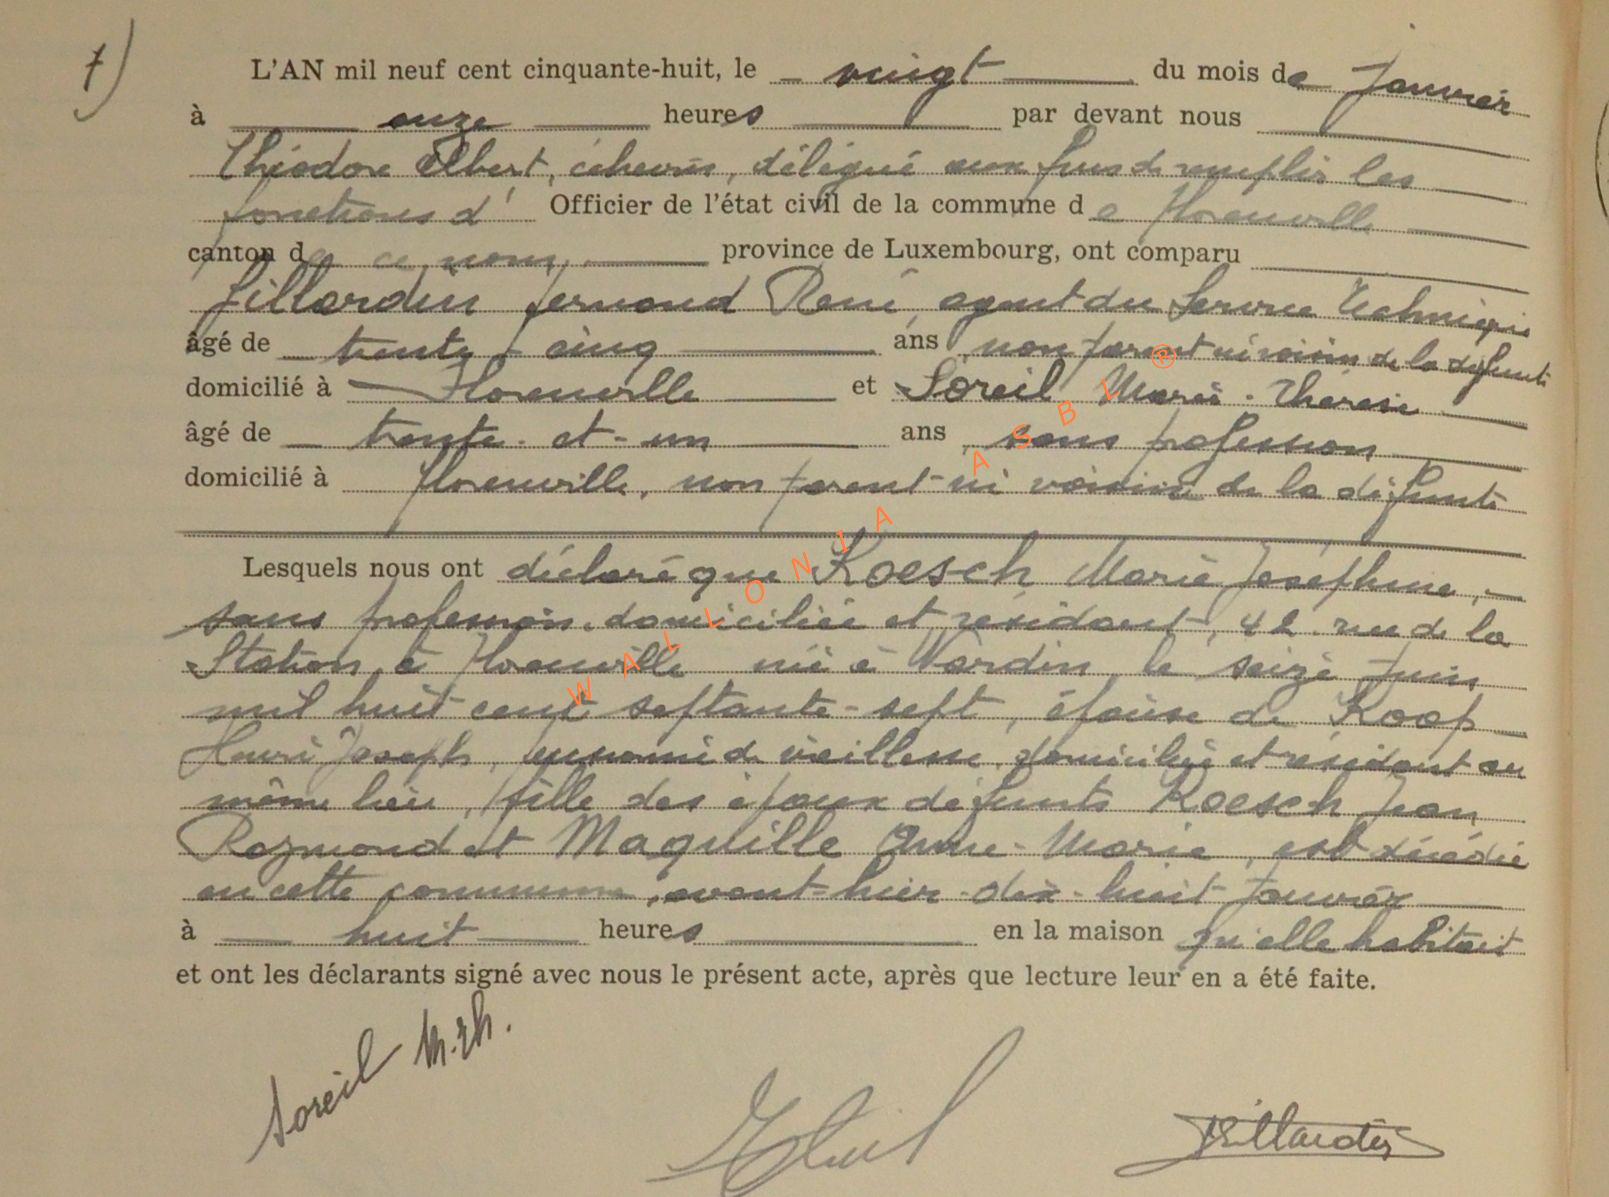 7)
L'AN mil neuf cent cinquante-huit, le vingt du mois de Janvier
à onze heures par devant nous
Théodore Albert, échevin, délégué aux fins de remplir les
fonctions d' Officier de l'état civil de la commune de Florenville
canton de ce nom, province de Luxembourg, ont comparu
Fernand René, agent du Service Technique
âgé de trente-cinq ans, non parent ni voisin de la défunte
domicilié à Florenville et Soreil Marie-Thérèse
âgé de trente-et-un ans, sans profession
domicilié à Florenville, non parent ni voisine de la défunte
Lesquels nous ont déclaré que Koesch Marie Joséphine,
sans profession, domiciliée et résidant, 42 rue de la
Station, à Florenville née à Wardin le seize Juin
mil huit cent septante-sept, épouse de Koop
Henri Joseph, pensionné de vieillesse, domicilié et résidant au
même lieu, fille des époux défunts Koesch Jean
Raymond et Maquille Anne-Marie, est décédée
en cette commune, avant-hier dix-huit Janvier
à huit heures en la maison qu'elle habitait
et ont les déclarants signé avec nous le présent acte, après que lecture leur en a été faite.
Soreil M.Th.
WALLONIA ASBL ®